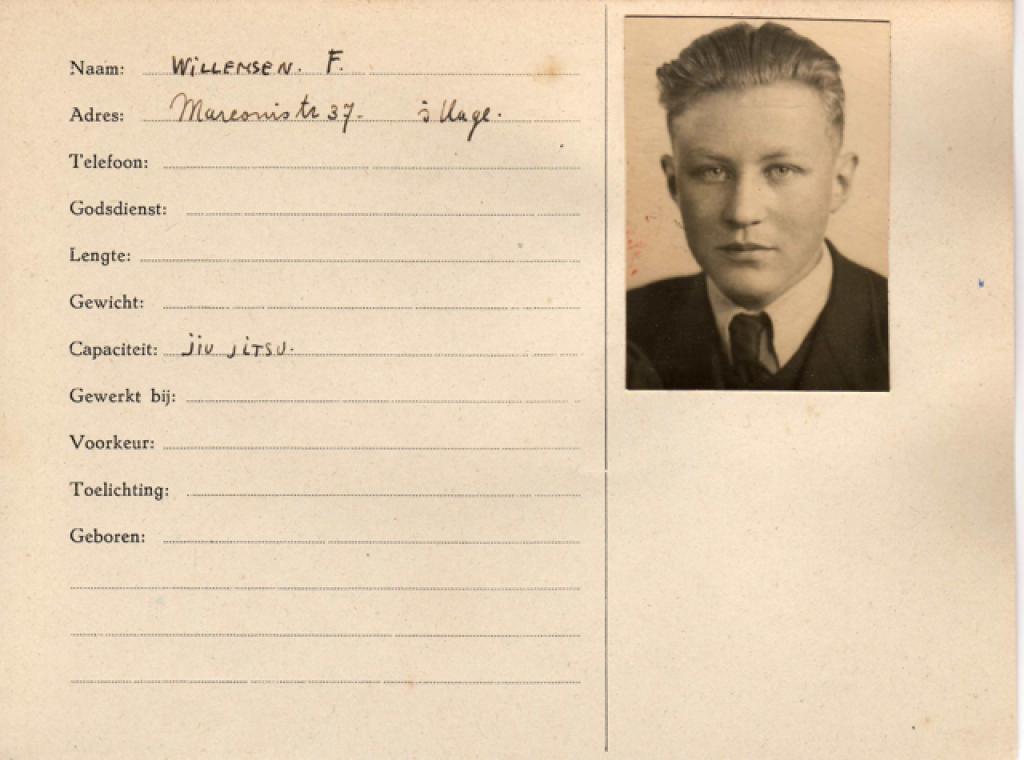 Naam: WILLEMSEN. F.
Adres: Marconistr 37. 's Hage.
Telefoon:
Godsdienst:
Lengte:
Gewicht:
Capaciteit: jiu jitsu.
Gewerkt bij:
Voorkeur:
Toelichting:
Geboren: